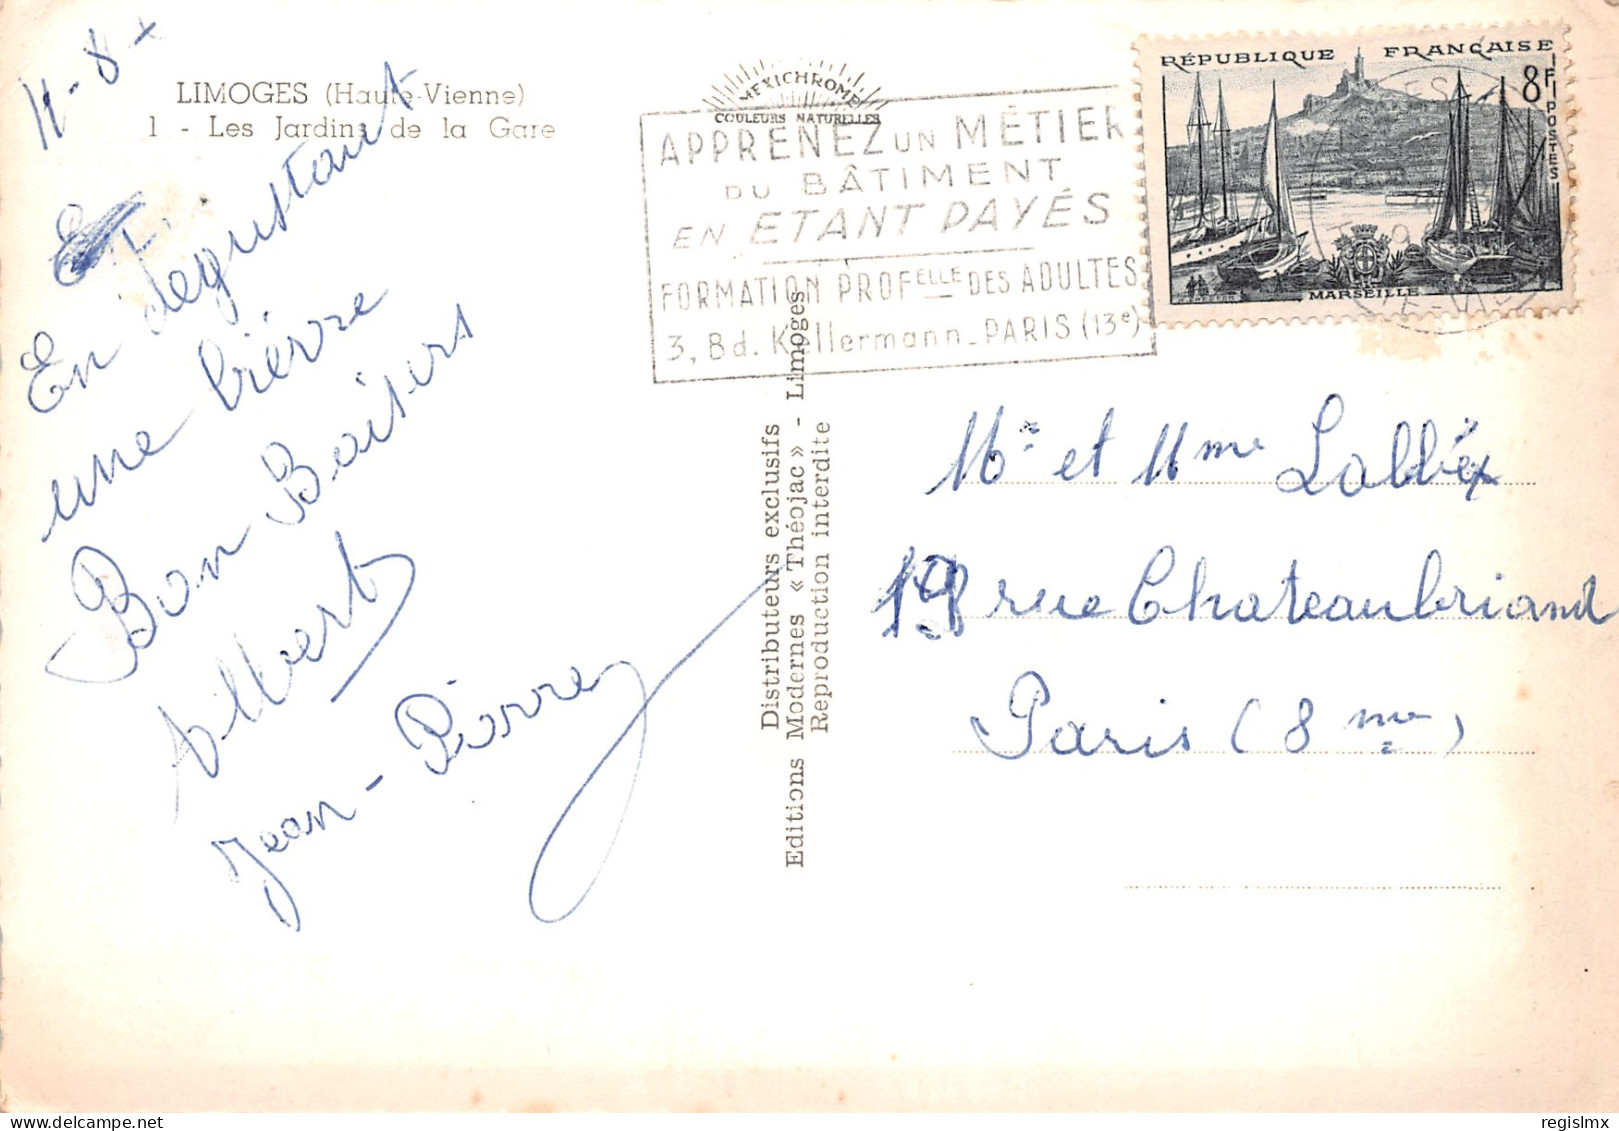 LIMOGES (Haute-Vienne)
1 - Les Jardins de la Gare
En degustant
une bière
Bon Baisers
Albert
Jean-Pierre
MEXICHROME
COULEURS NATURELLES
APPRENEZ UN MÉTIER
DU BÂTIMENT
EN ETANT PAYÉS
FORMATION PROFELLE DES ADULTES
3, Bd. Kellermann - PARIS (13e)
Distributeurs exclusifs
Editions Modernes « Théojac » - Limoges
Reproduction interdite
RÉPUBLIQUE FRANÇAISE
8F
POSTES
MARSEILLE
Mr et Mme
rue Chateaubriand
Paris (8 me)
regislmx